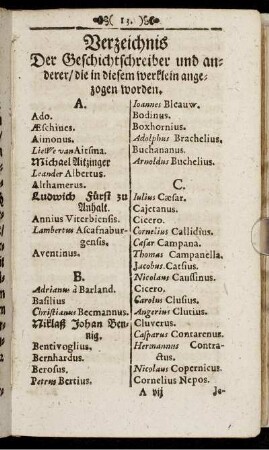 ( 13. )
Verzeichnis
Der Geschichtschreiber und an-
derer/ die in diesem werklein ange-
zogen worden.
A.
Ado.
Æschines.
Aimonus.
LieWe van Aitsma.
Michael Aitzinger
Leander Albertus.
Althamerus.
Ludwich Fürst zu
Anhalt.
Annius Viterbiensis.
Lambertus Ascafnabur-
gensis.
Aventinus.
B.
Adrianus à Barland.
Basilius
Christianus Becmannus.
Niklaß Johan Ben-
nig.
Bentivoglius.
Bernhardus.
Berosus.
Petrus Bertius.
Ioannes Bleauw.
Bodinus.
Boxhornius.
Adolphus Brachelius.
Buchananus.
Arnoldus Buchelius.
C.
Iulius Cæsar.
Cajetanus.
Cicero.
Cornelius Callidius.
Cæsar Campana.
Thomas Campanella.
Jacobus Catsius.
Nicolaus Caussinus.
Cicero.
Carolus Clusius.
Augerius Clutius.
Cluverus.
Casparus Contarenus.
Hermannus Contra-
ctus.
Nicolaus Copernicus.
Cornelius Nepos.
A vij